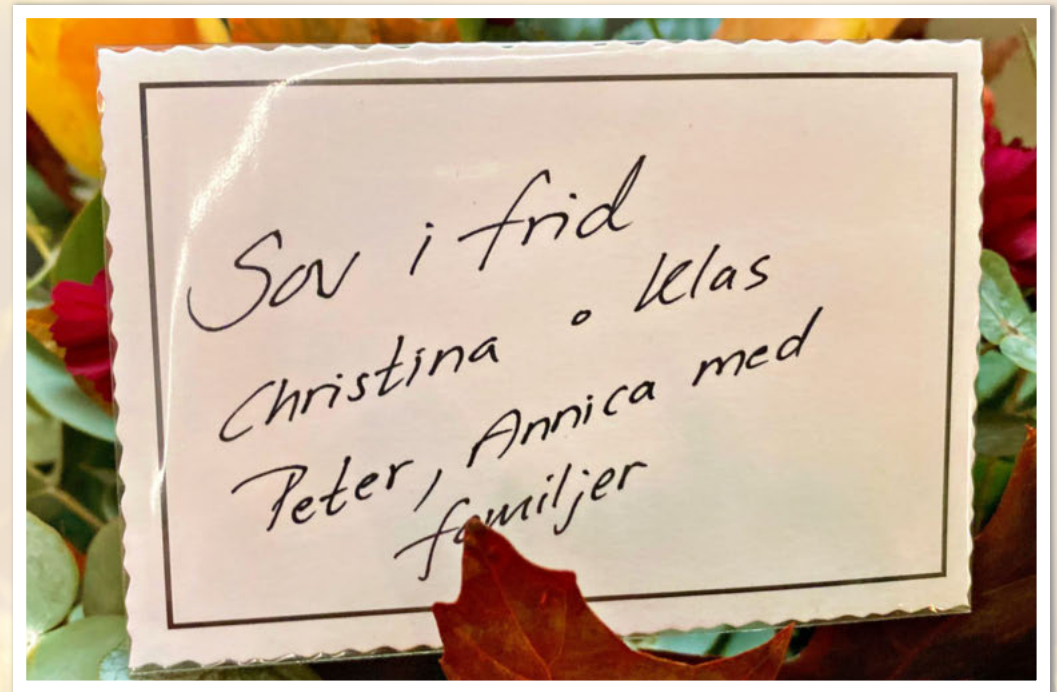 Sov i frid
Christina o Klas
Peter, Annica med
familjer